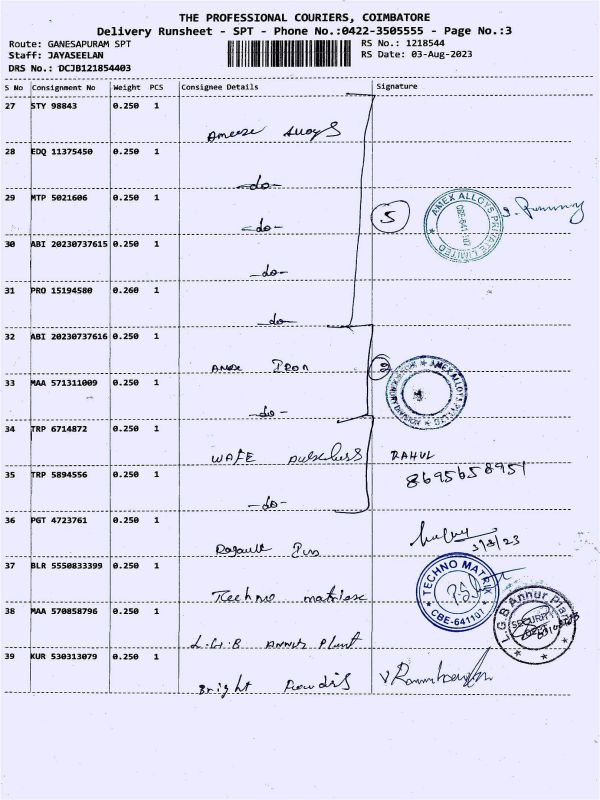 THE PROFESSIONAL COURIERS, COIMBATORE
Delivery Runsheet - SPT - Phone No.:0422-3505555 - Page No.:3
Route: GANESAPURAM SPT
Staff: JAYASEELAN
DRS No.: DCJB121854403
RS No.: 1218544
RS Date: 03-Aug-2023
S No Consignment No Weight PCS Consignee Details Signature
27 STY 98843 0.250 1
28 EDQ 11375450 0.250 1
-do-
29 MTP 5021606 0.250 1
-do-
5
AMEX ALLOYS PRIVATE LIMITED
CBE-641 107
30 ABI 20230737615 0.250 1
-do-
31 PRO 15194580 0.260 1
-do-
32 ABI 20230737616 0.250 1
Iron
AMEX ALLOYS PVT LTD
33 MAA 571311009 0.250 1
-do-
34 TRP 6714872 0.250 1
RAHUL
8695658951
35 TRP 5894556 0.250 1
-do-
36 PGT 4723761 0.250 1
3/8/23
37 BLR 5550833399 0.250 1
Techno matrixx
TECHNO MATRIX
CBE-641107
38 MAA 570858796 0.250 1
L.G.B ANNUR Plant
L.G.B Annur Plant
SECURITY
39 KUR 530313079 0.250 1
Bright